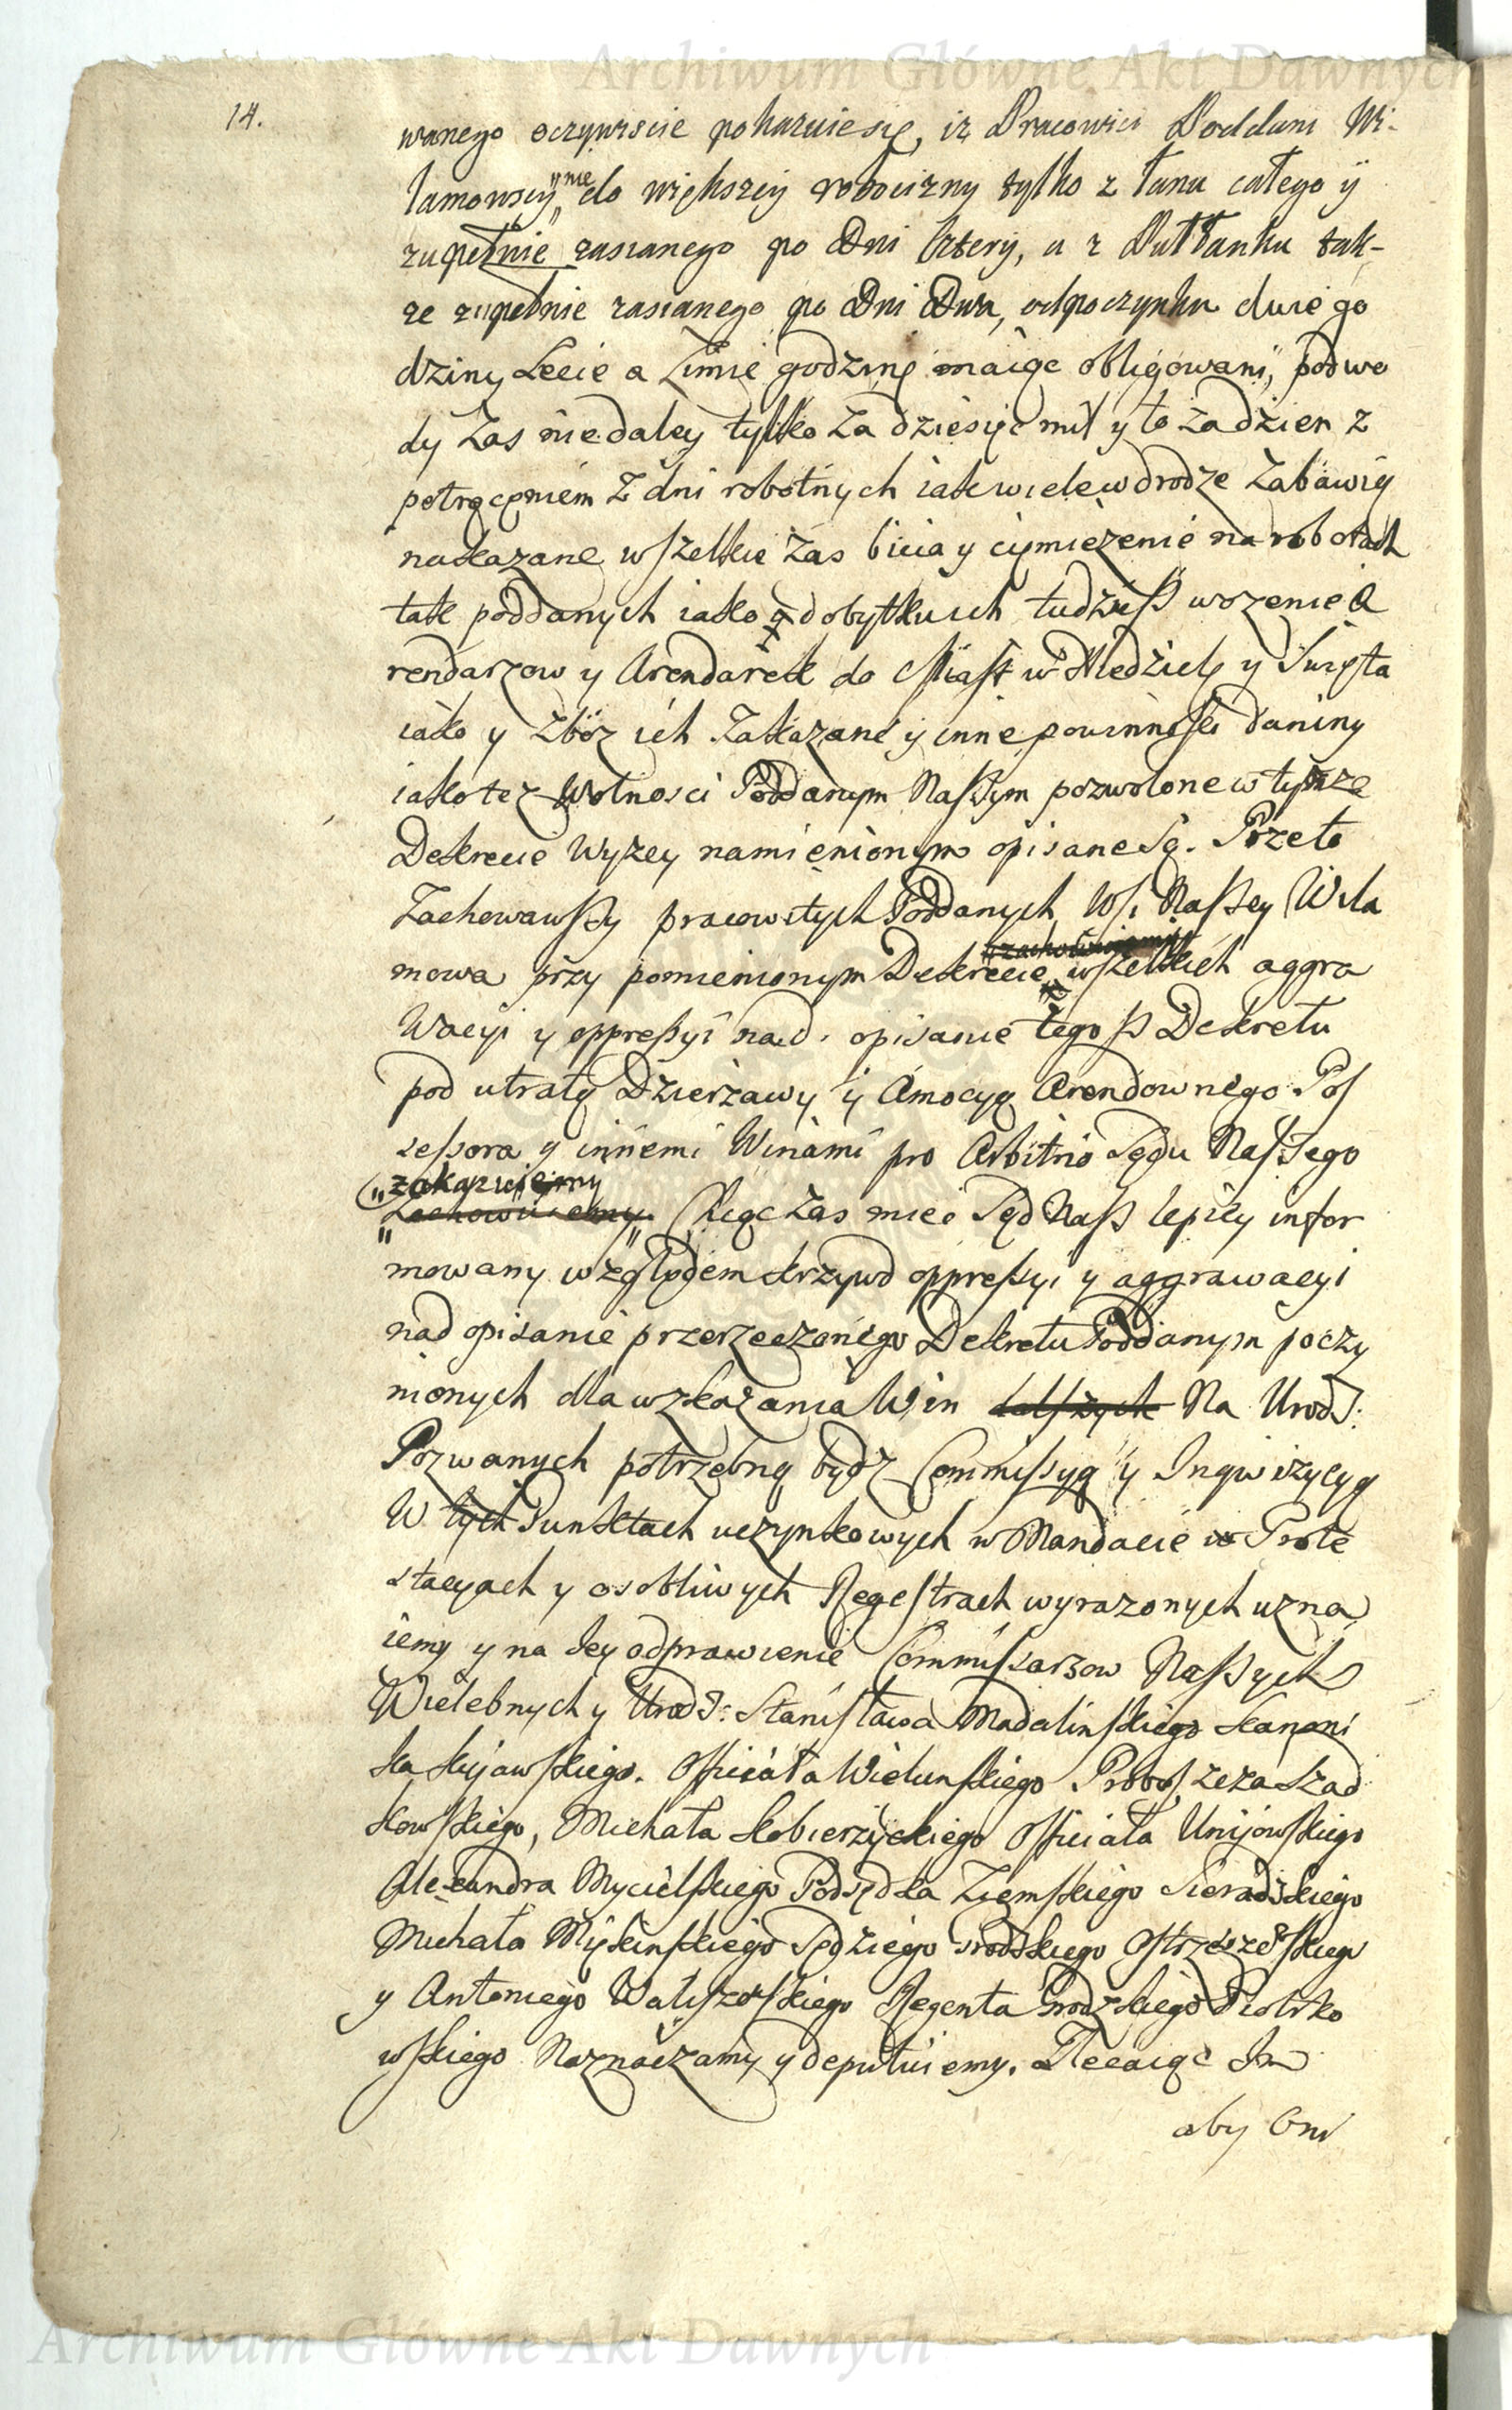 Archiwum Główne Akt Dawnych
14.
wanego oczywiscie pokazuie się, iż Pracowici Poddani Wi-
lamowscy "nie" do większey robocizny tylko z łanu całego y
zupełnie zasianego po Dni Cztery, a z Pułłanku tak-
ze zupełnie zasianego po Dni Dwa, odpoczynku dwie go
dziny Lecie a Zimie godzinę maiąc obligowani, podwo
dy zas nie daley tylko za dziesięć mil y to za dzien z
potrąceniem z dni robotnych iak wiele w drodze zabawią
nakazane, wszelkie zas bicia y ciemiezenie na robotach
tak poddanych iako y dobytku ich tudziesz wozenie A
rendarzow y Arendarek do Miast w Niedzielę y Swięta
iako y zboz ich zakazane y inne powinnosci daniny
iako tez Wolnosci Poddanym Naszym pozwolone w tymze
Dekrecie wyzey namienionym opisane są. Przeto
Zachowawszy pracowitych Poddanych Wsi Naszey Wila
mowa przy pomienionym Dekrecie wszelkich aggra
wacyi y oppressyi nad opisanie tegosz Dekretu
pod utratą Dzierzawy y Amocyą Arendownego Pos
sessora y innemi Winami pro Arbitrio Sądu Naszego
"zakazuiemy
Zachowuiemy" Chcąc zas miec Sąd Nasz lepiey infor
mowany względem krzywd oppressyi y aggrawacyi
nad opisanie przerzeczonego Dekretu Poddanym poczy
nionych dla wskazania Win Na Urodz:
Pozwanych potrzebną bydz Commissyą y Inqwizycyą
W tych Punktach uczynkowych w Mandacie w Prote
stacyach y osobliwych Regestrach wyrazonych uzna
iemy y na Jey odprawienie Commissarzow Naszych
Wielebnych y Urodz: Stanisława Madalinskiego Kanoni
ka Kujawskiego. Officiała Wielunskiego Proboszcza Szad
kowskiego, Michała Kobierzyckiego Officiała Uniiowskiego
Alexandra Mycielskiego Podsędka Ziemskiego Sieradzkiego
Michała Myszkinskiego Sędziego Grodzkiego Ostrzeszowskiego
y Antoniego Waliszewskiego Regenta Grodzkiego Piotrko
wskiego Naznaczamy y deputuiemy. Zlecaiąc Im
aby Oni
Archiwum Główne Akt Dawnych